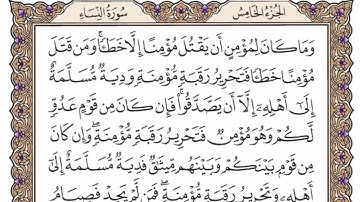 الجزء الخامس سورة النساء
وَمَا كَانَ لِمُؤْمِنٍ أَن يَقْتُلَ مُؤْمِنًا إِلَّا خَطَـًٔا ۚ وَمَن قَتَلَ
مُؤْمِنًا خَطَـًٔا فَتَحْرِيرُ رَقَبَةٍ مُّؤْمِنَةٍ وَدِيَةٌ مُّسَلَّمَةٌ
إِلَىٰٓ أَهْلِهِۦٓ إِلَّآ أَن يَصَّدَّقُوا۟ ۚ فَإِن كَانَ مِن قَوْمٍ عَدُوٍّ
لَّكُمْ وَهُوَ مُؤْمِنٌ فَتَحْرِيرُ رَقَبَةٍ مُّؤْمِنَةٍ ۖ وَإِن كَانَ
مِن قَوْمٍۭ بَيْنَكُمْ وَبَيْنَهُم مِّيثَـٰقٌ فَدِيَةٌ مُّسَلَّمَةٌ إِلَىٰٓ
أَهْلِهِۦ وَتَحْرِيرُ رَقَبَةٍ مُّؤْمِنَةٍ ۖ فَمَن لَّمْ يَجِدْ فَصِيَامُ